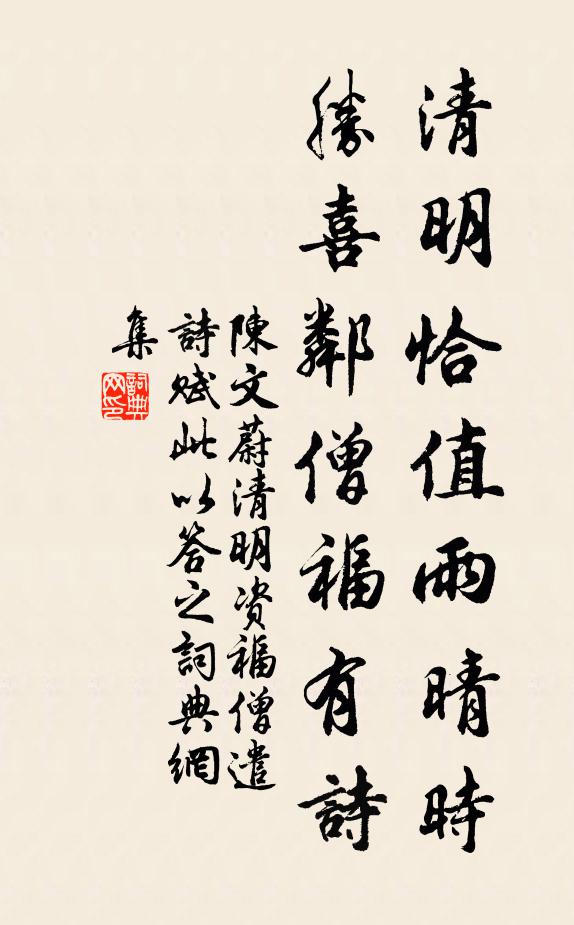 清明恰值雨晴時
勝喜鄰僧福有詩
陳文蔚清明资福僧遣
詩賦此以答之詞典網
集
詞典
网印